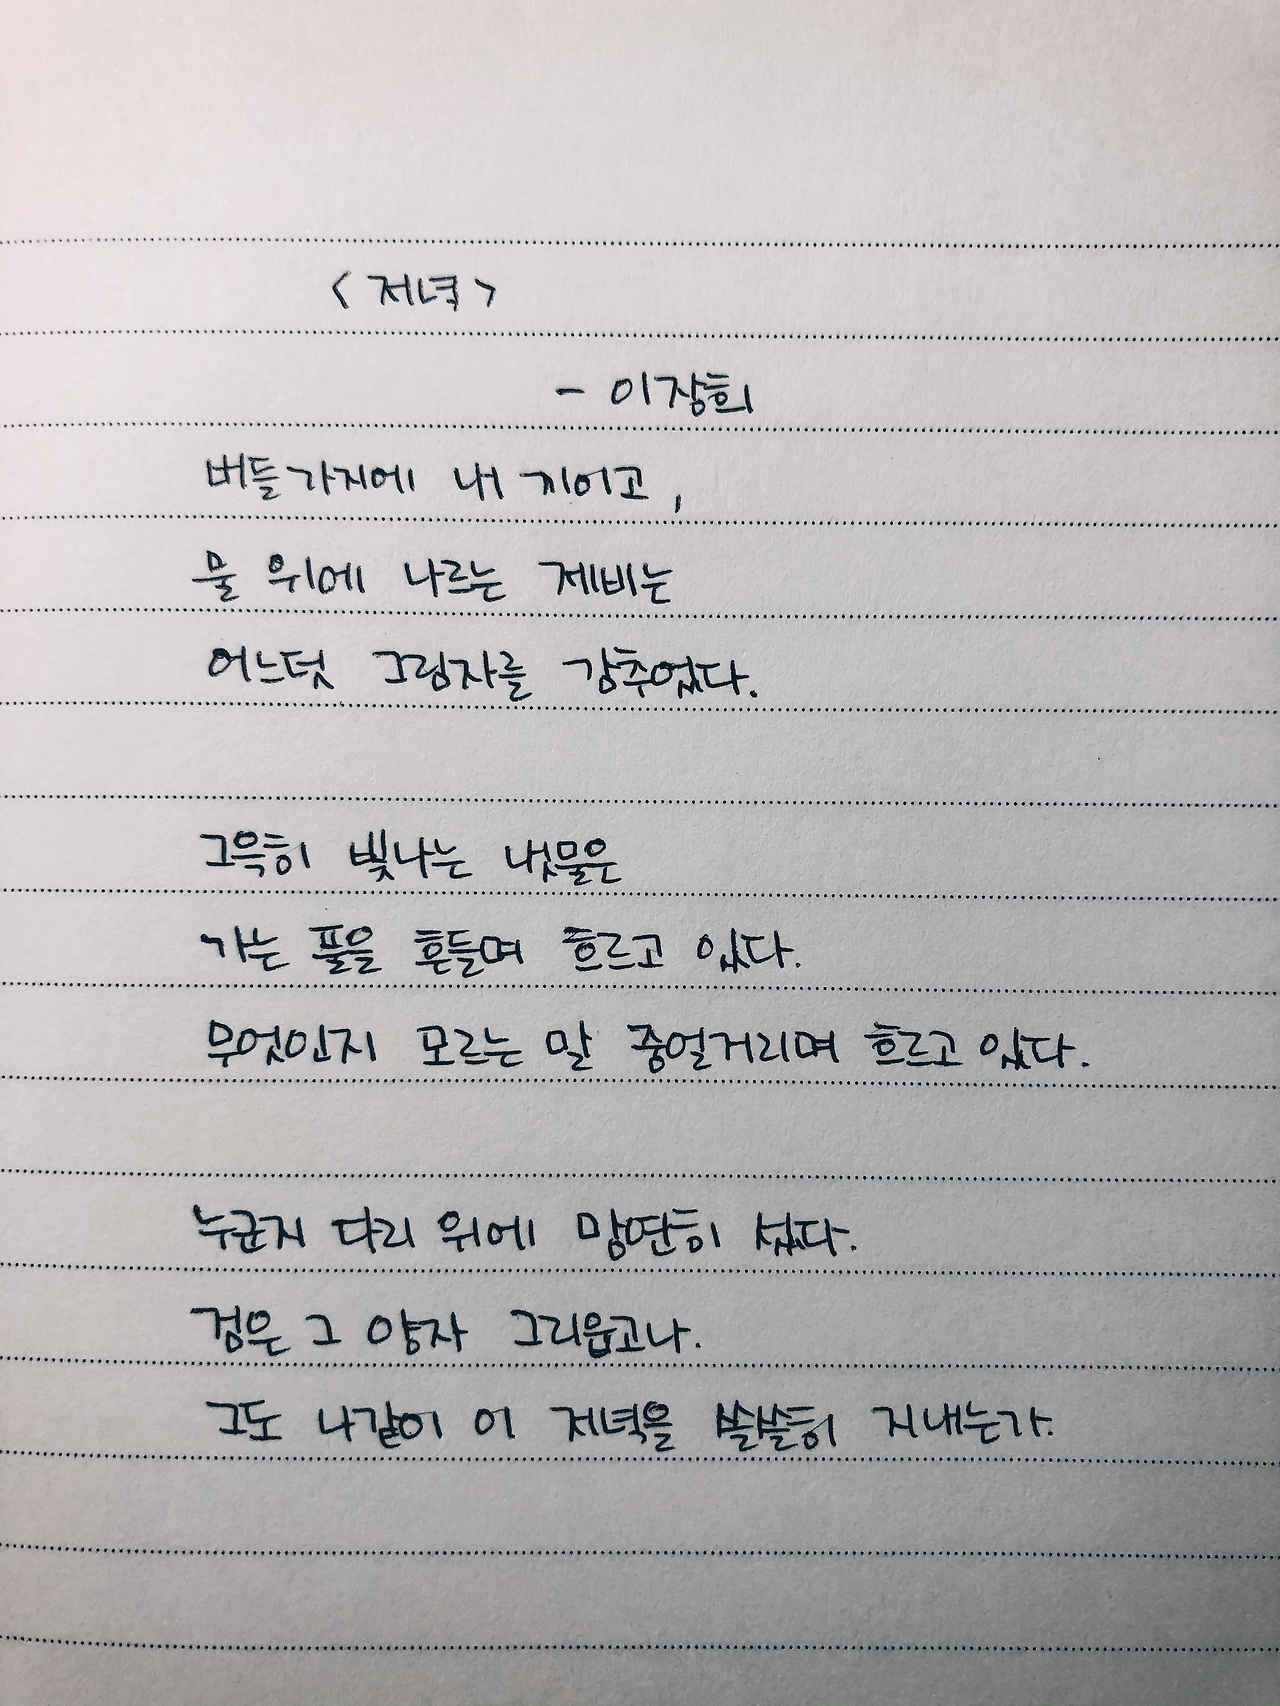 <저녁>
- 이장희
버들가지에 내 끼이고,
물 위에 나르는 제비는
어느덧 그림자를 감추었다.
그윽히 빛나는 냇물은
가는 풀을 흔들며 흐르고 있다.
무엇인지 모르는 말 중얼거리며 흐르고 있다.
누군지 다리 위에 망연히 섰다.
검은 그 양자 그리웁고나.
그도 나같이 이 저녁을 쓸쓸히 지내는가.